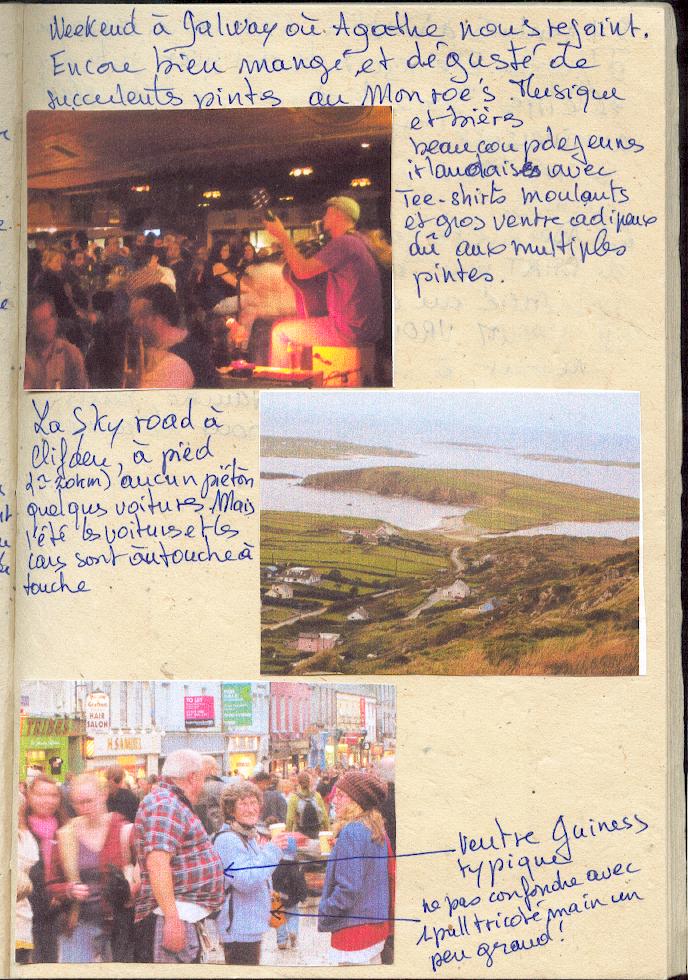 Weekend à Galway où Agathe nous rejoint.
Encore bien mangé et dégusté de
succulents pintes au Monroe's. Musique
et bières
beaucoup de jeunes
irlandaises avec
Tee-shirts moulants
et gros ventre adipeux
dû aux multiples
pintes.
La Sky road à
Clifden, à pied
(~20km) aucun piéton
quelques voitures. Mais
l'été les voitures et les
cars sont à touche à
touche
TRIBES
HAIR
SALON
TO LET
H. SAMUEL
Ventre Guiness
typique
ne pas confondre avec
1 pull tricoté main un
peu grand!